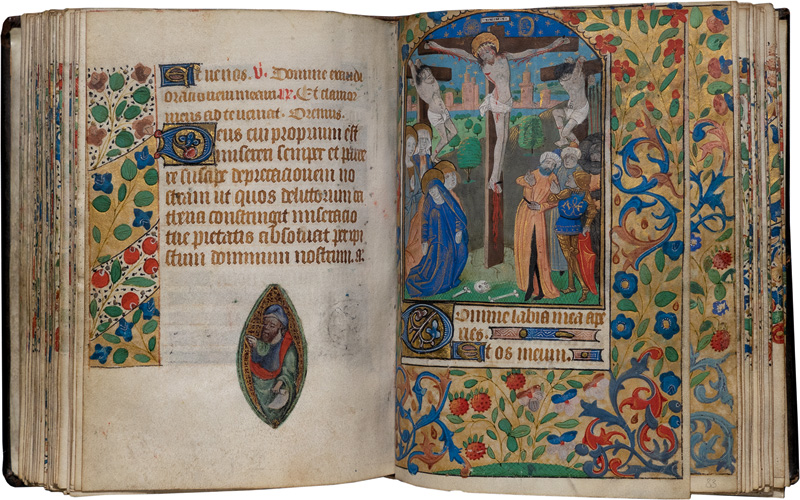 Et ueniat. V. Domine exaudi
orationem meam. R. Et clamor
meus ad te ueniat. Oremus.
Deus cui proprium est
misereri semper et parce
re suscipe deprecacionem no
stram ut quos delictorum ca
thena constringit miseracio
tue pietatis absoluat per xpi
stum dominum nostrum. a.
Domine labia mea ape
ries.
Et os meum.